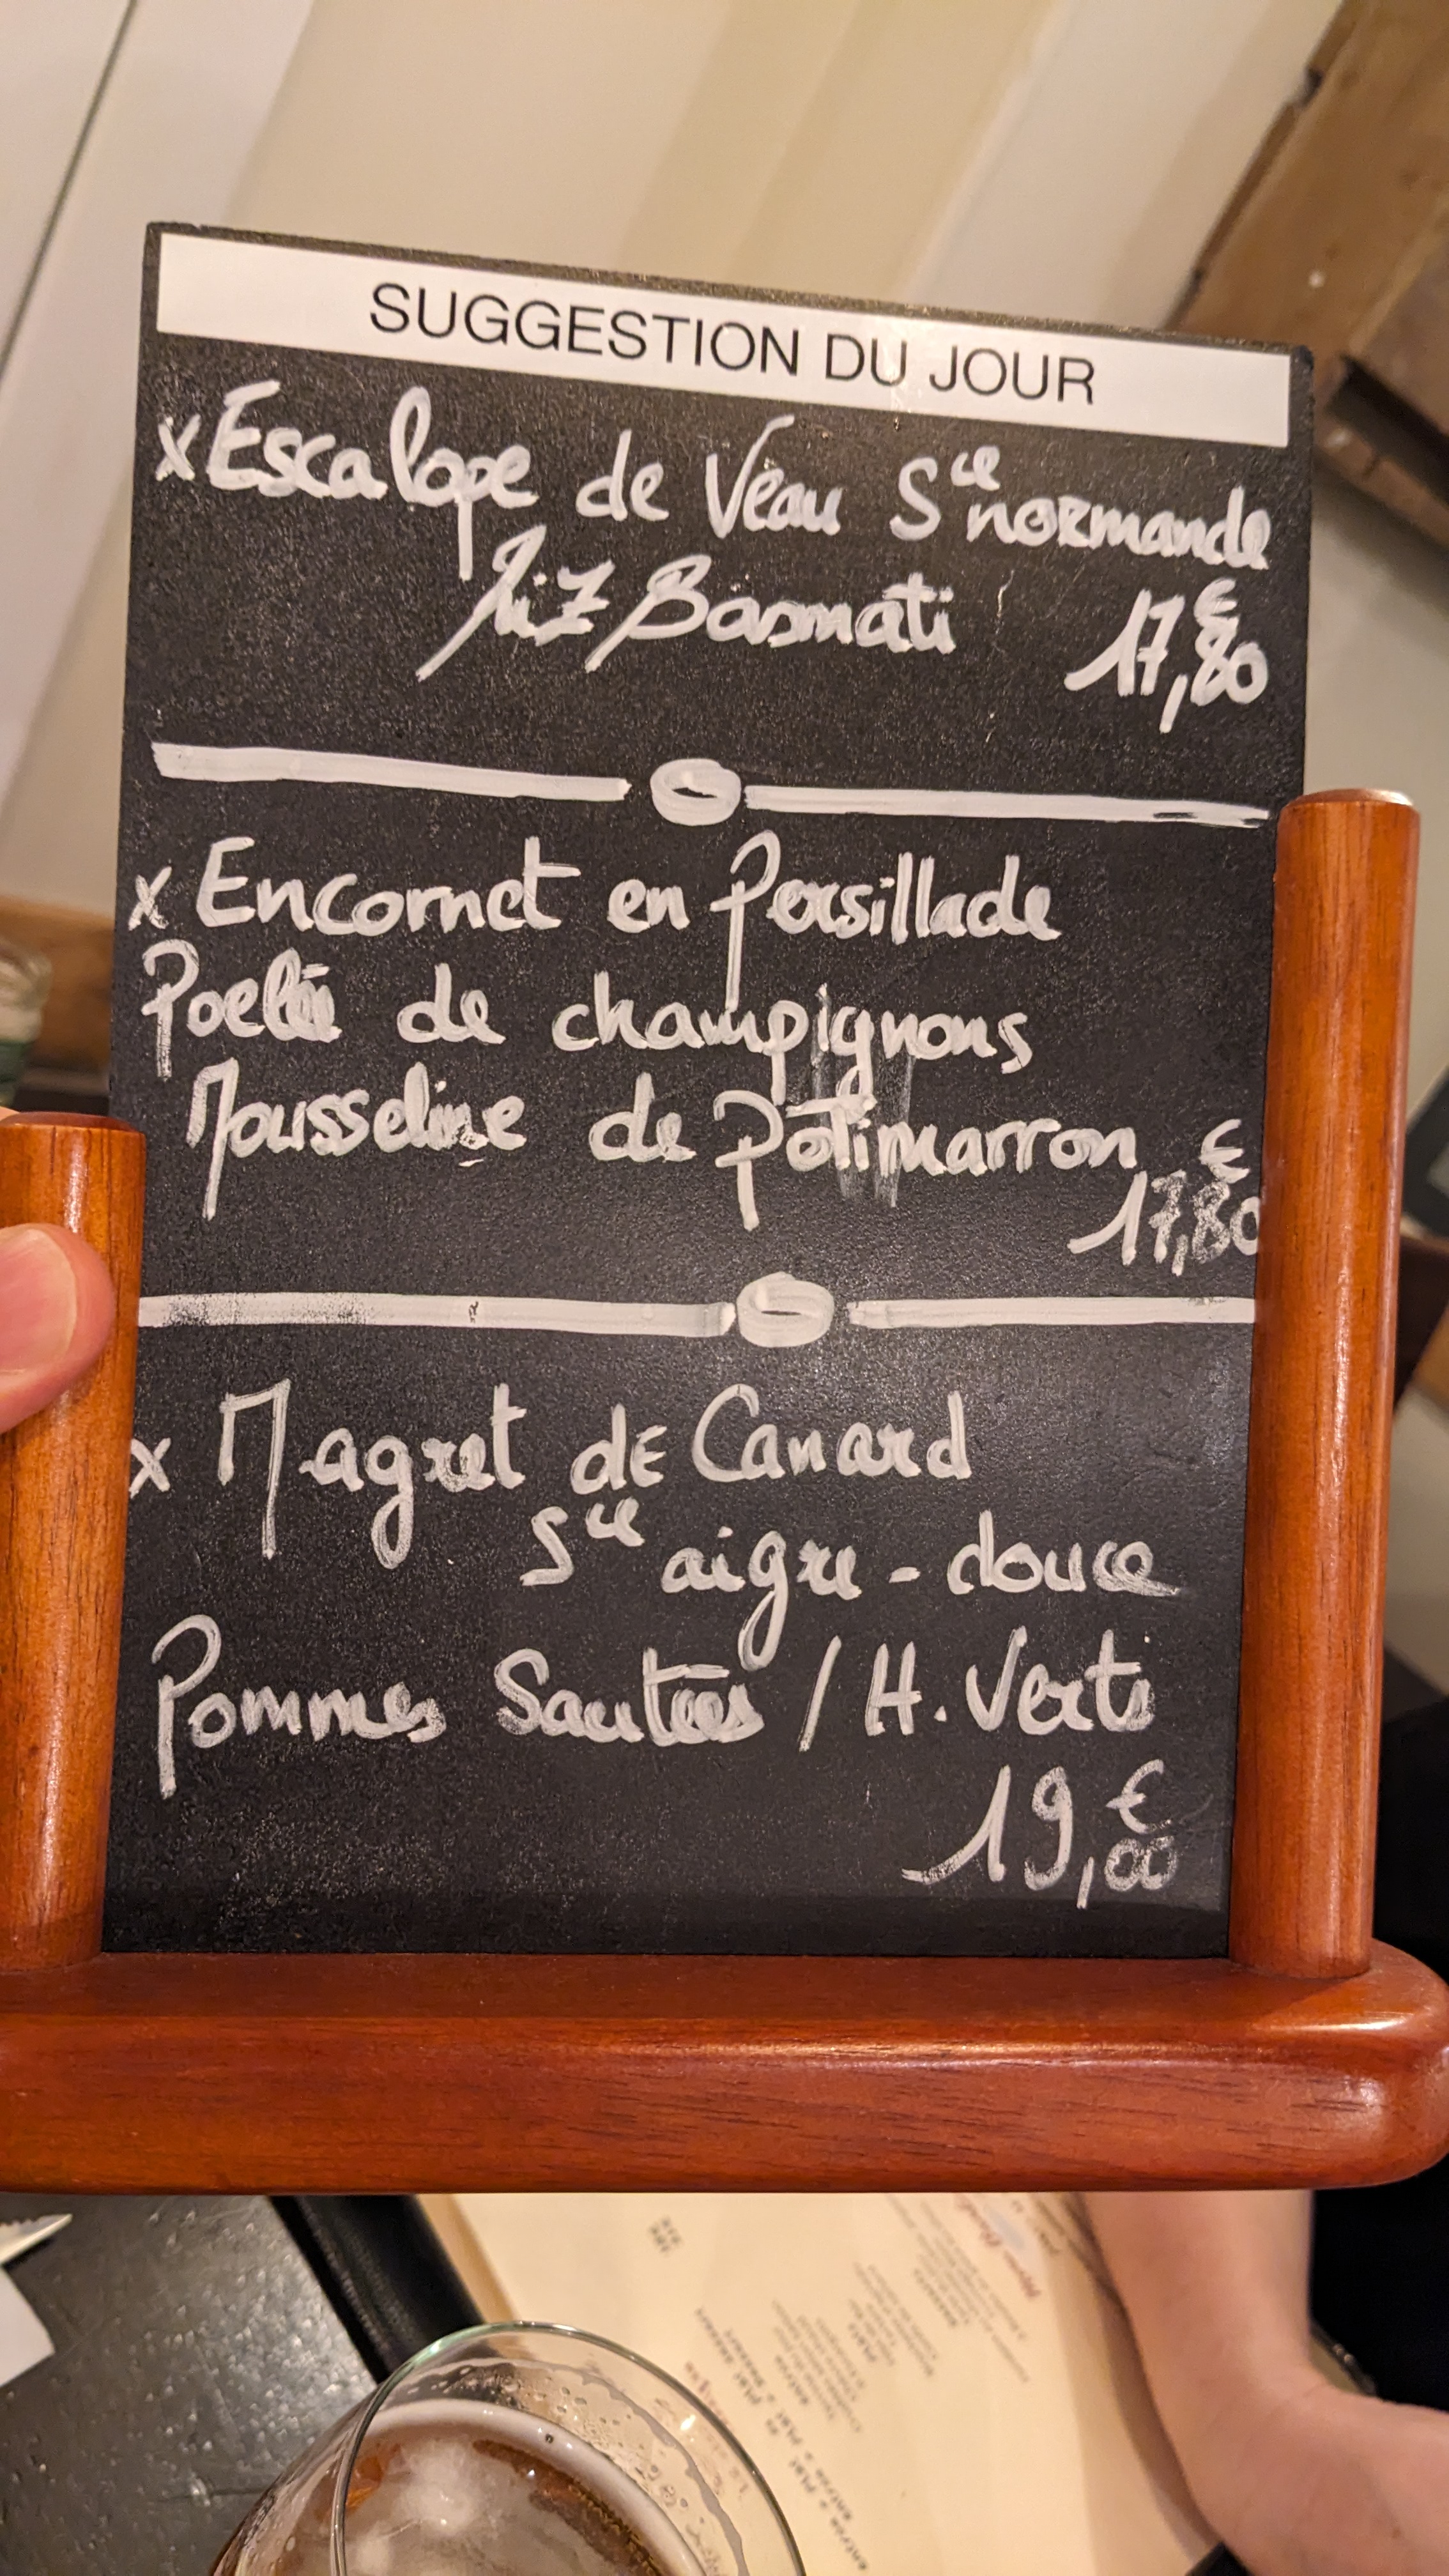 SUGGESTION DU JOUR
x Escalope de Veau Sce normande
Riz Basmati 17,80€
x Encornet en Persillade
Poelée de champignons
Mousseline de potimarron
17,80€
x Magret de Canard
Sce aigre-douce
Pommes Sautées / H. Verts
19,00€